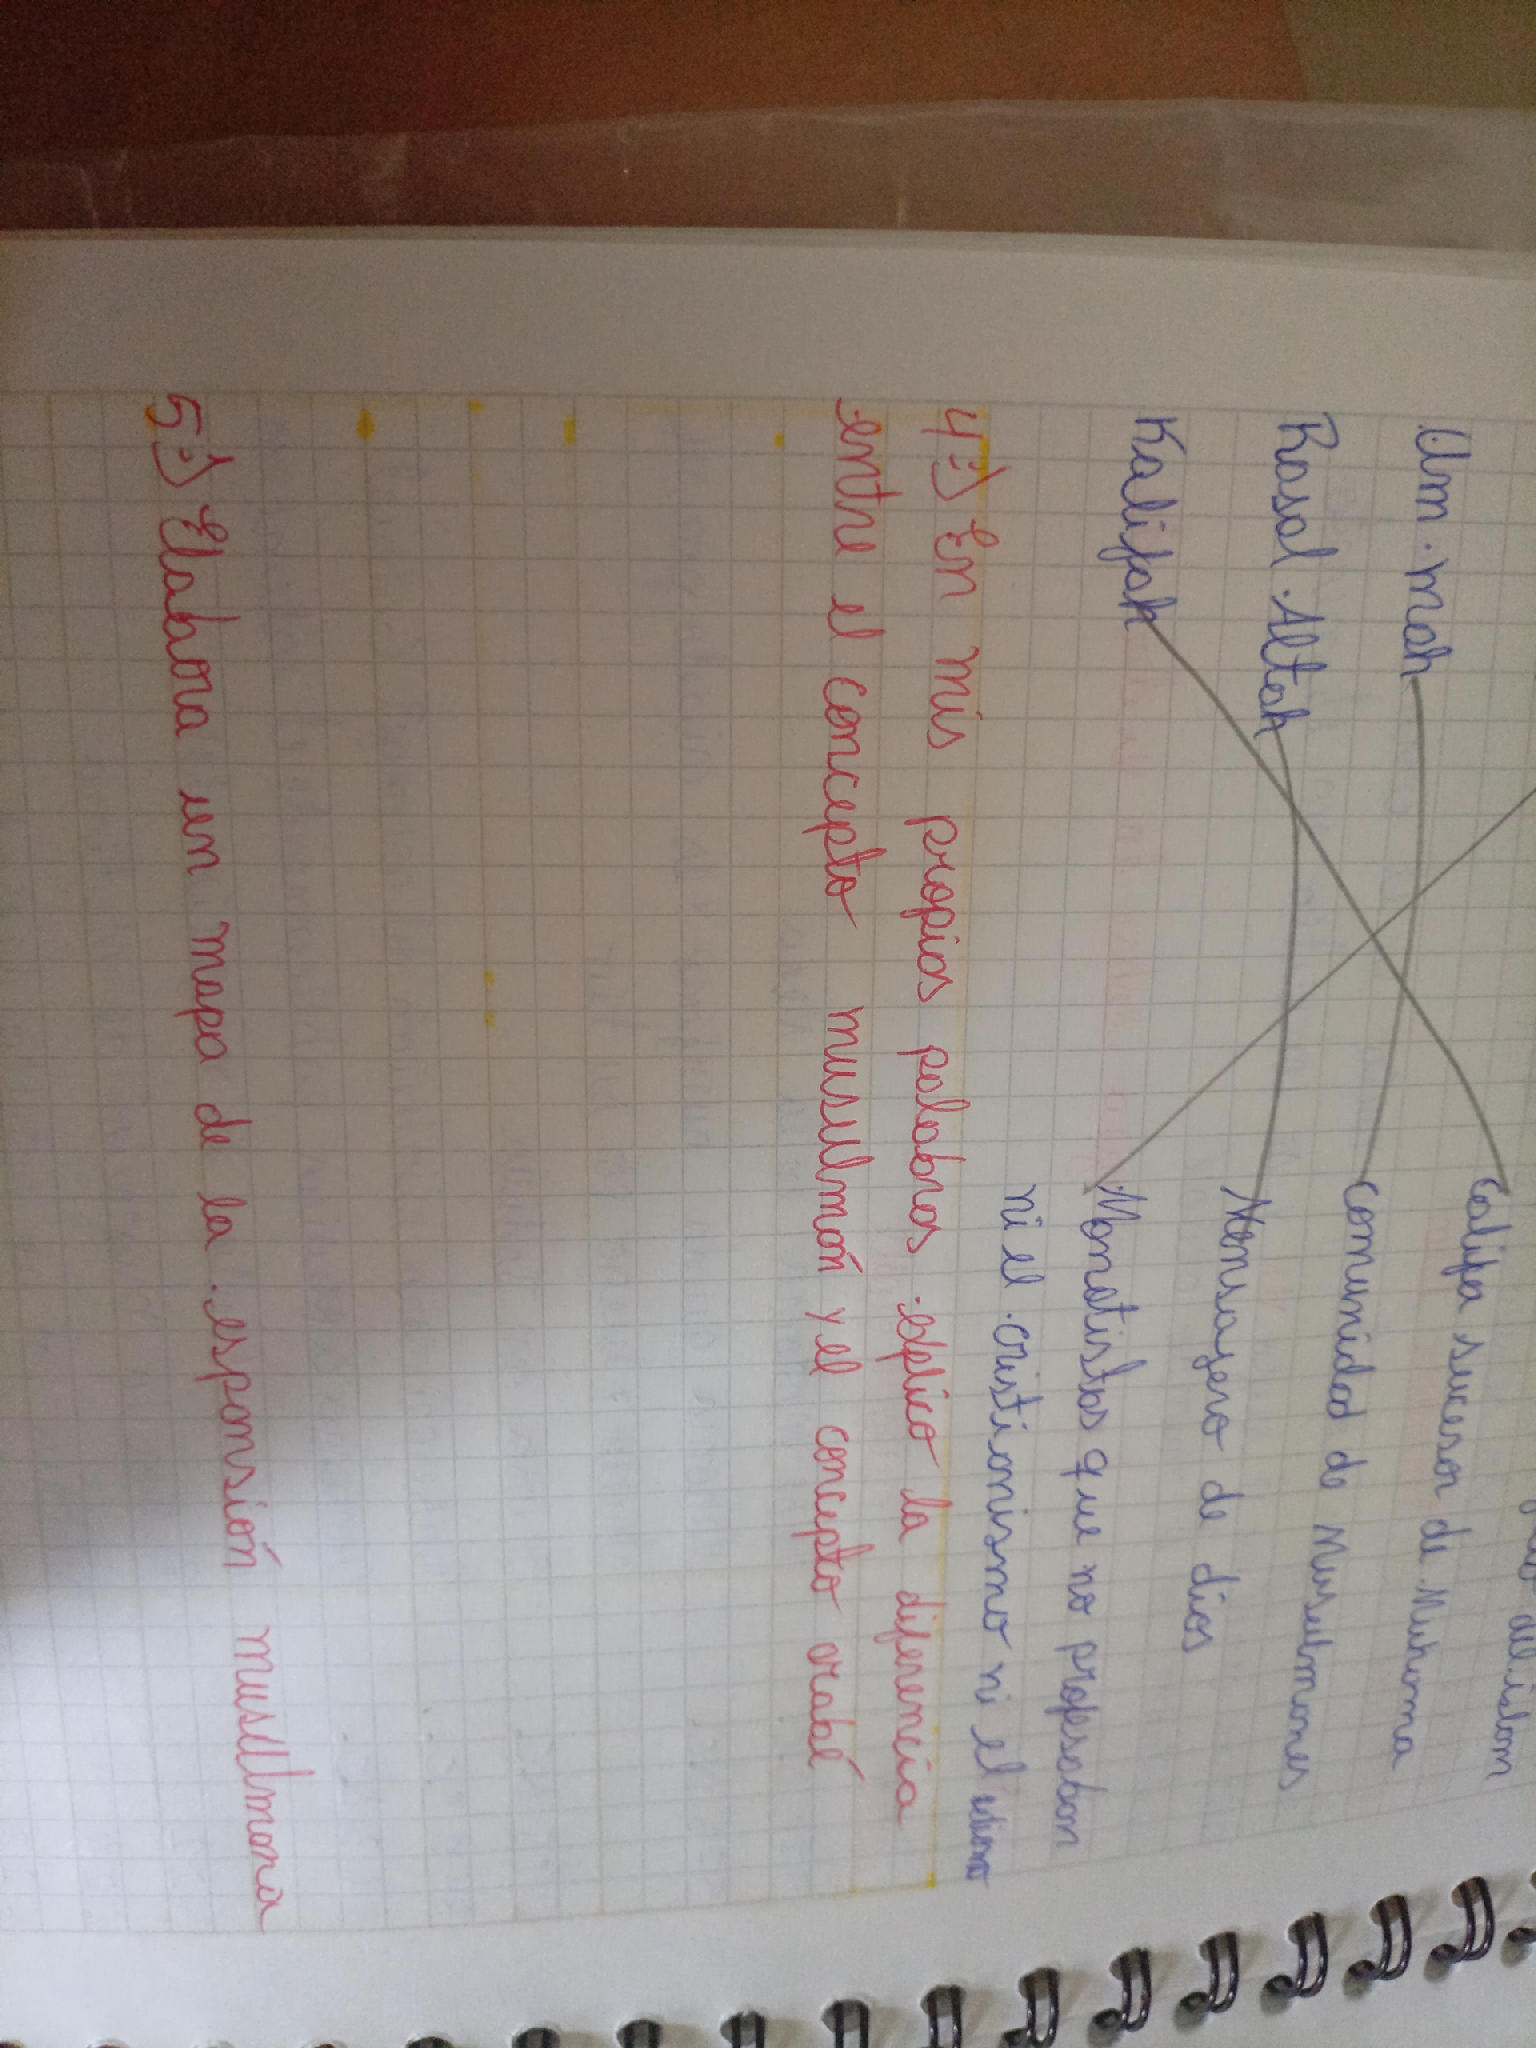 del islam
Um.mah
Califa sucesor de Muhoma
Rasol Allah
Comunidad de Musulmanes
Kalifah
Mensajero de dios
Monotistas que no profesaban
ni el cristianismo ni el
4=) En mis propias palabras explico la diferencia
entre el concepto musulmán y el concepto arabé
5=) Elabora un mapa de la espansión musulmana